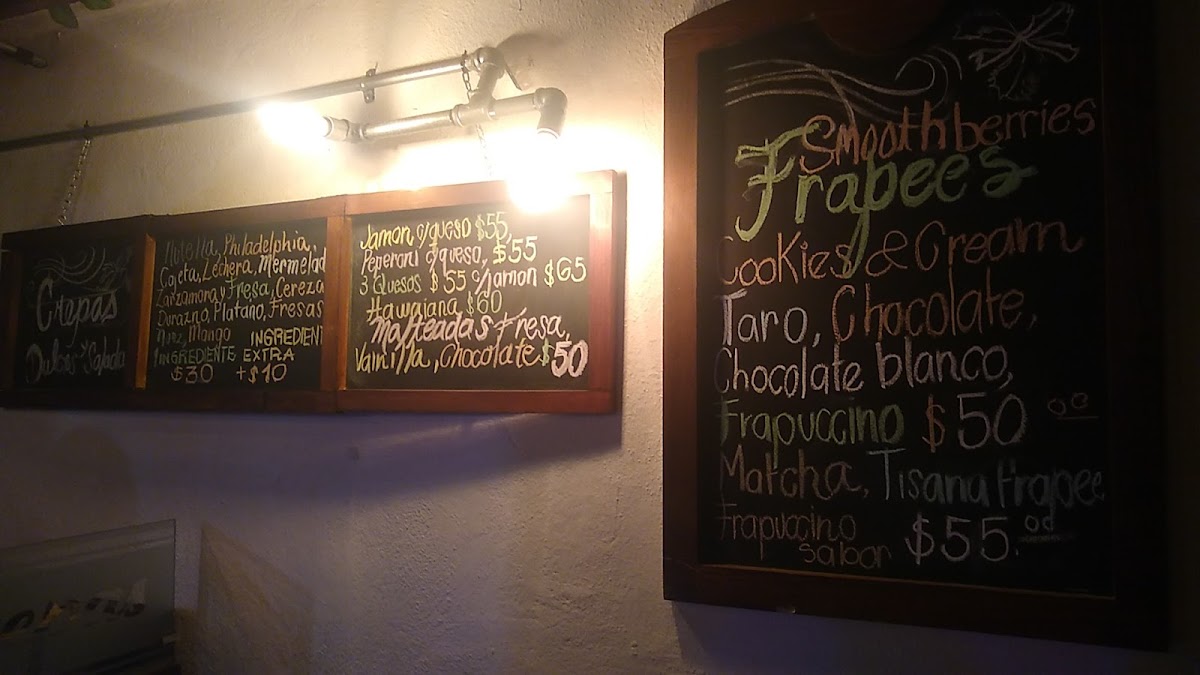 Crepas
Dulces y Saladas
Nutella, Philadelphia,
Cajeta, Lechera, Mermelad
Zarzamora y Fresa, Cereza
Durazno, Platano, Fresas
Mango INGREDIENT
INGREDIENTE EXTRA
$30 +$10
Jamon c/queso $55,
Peperoni c/queso, $55
3 Quesos $55 c/Jamon $65
Hawaiana $60
Malteadas Fresa,
Vainilla, Chocolate $50
Smoothberries
Frapees
Cookies & Cream
Taro, Chocolate,
Chocolate blanco,
Frapuccino $50 00
Matcha, Tisana Frapee
Frapuccino
sabor $55.00